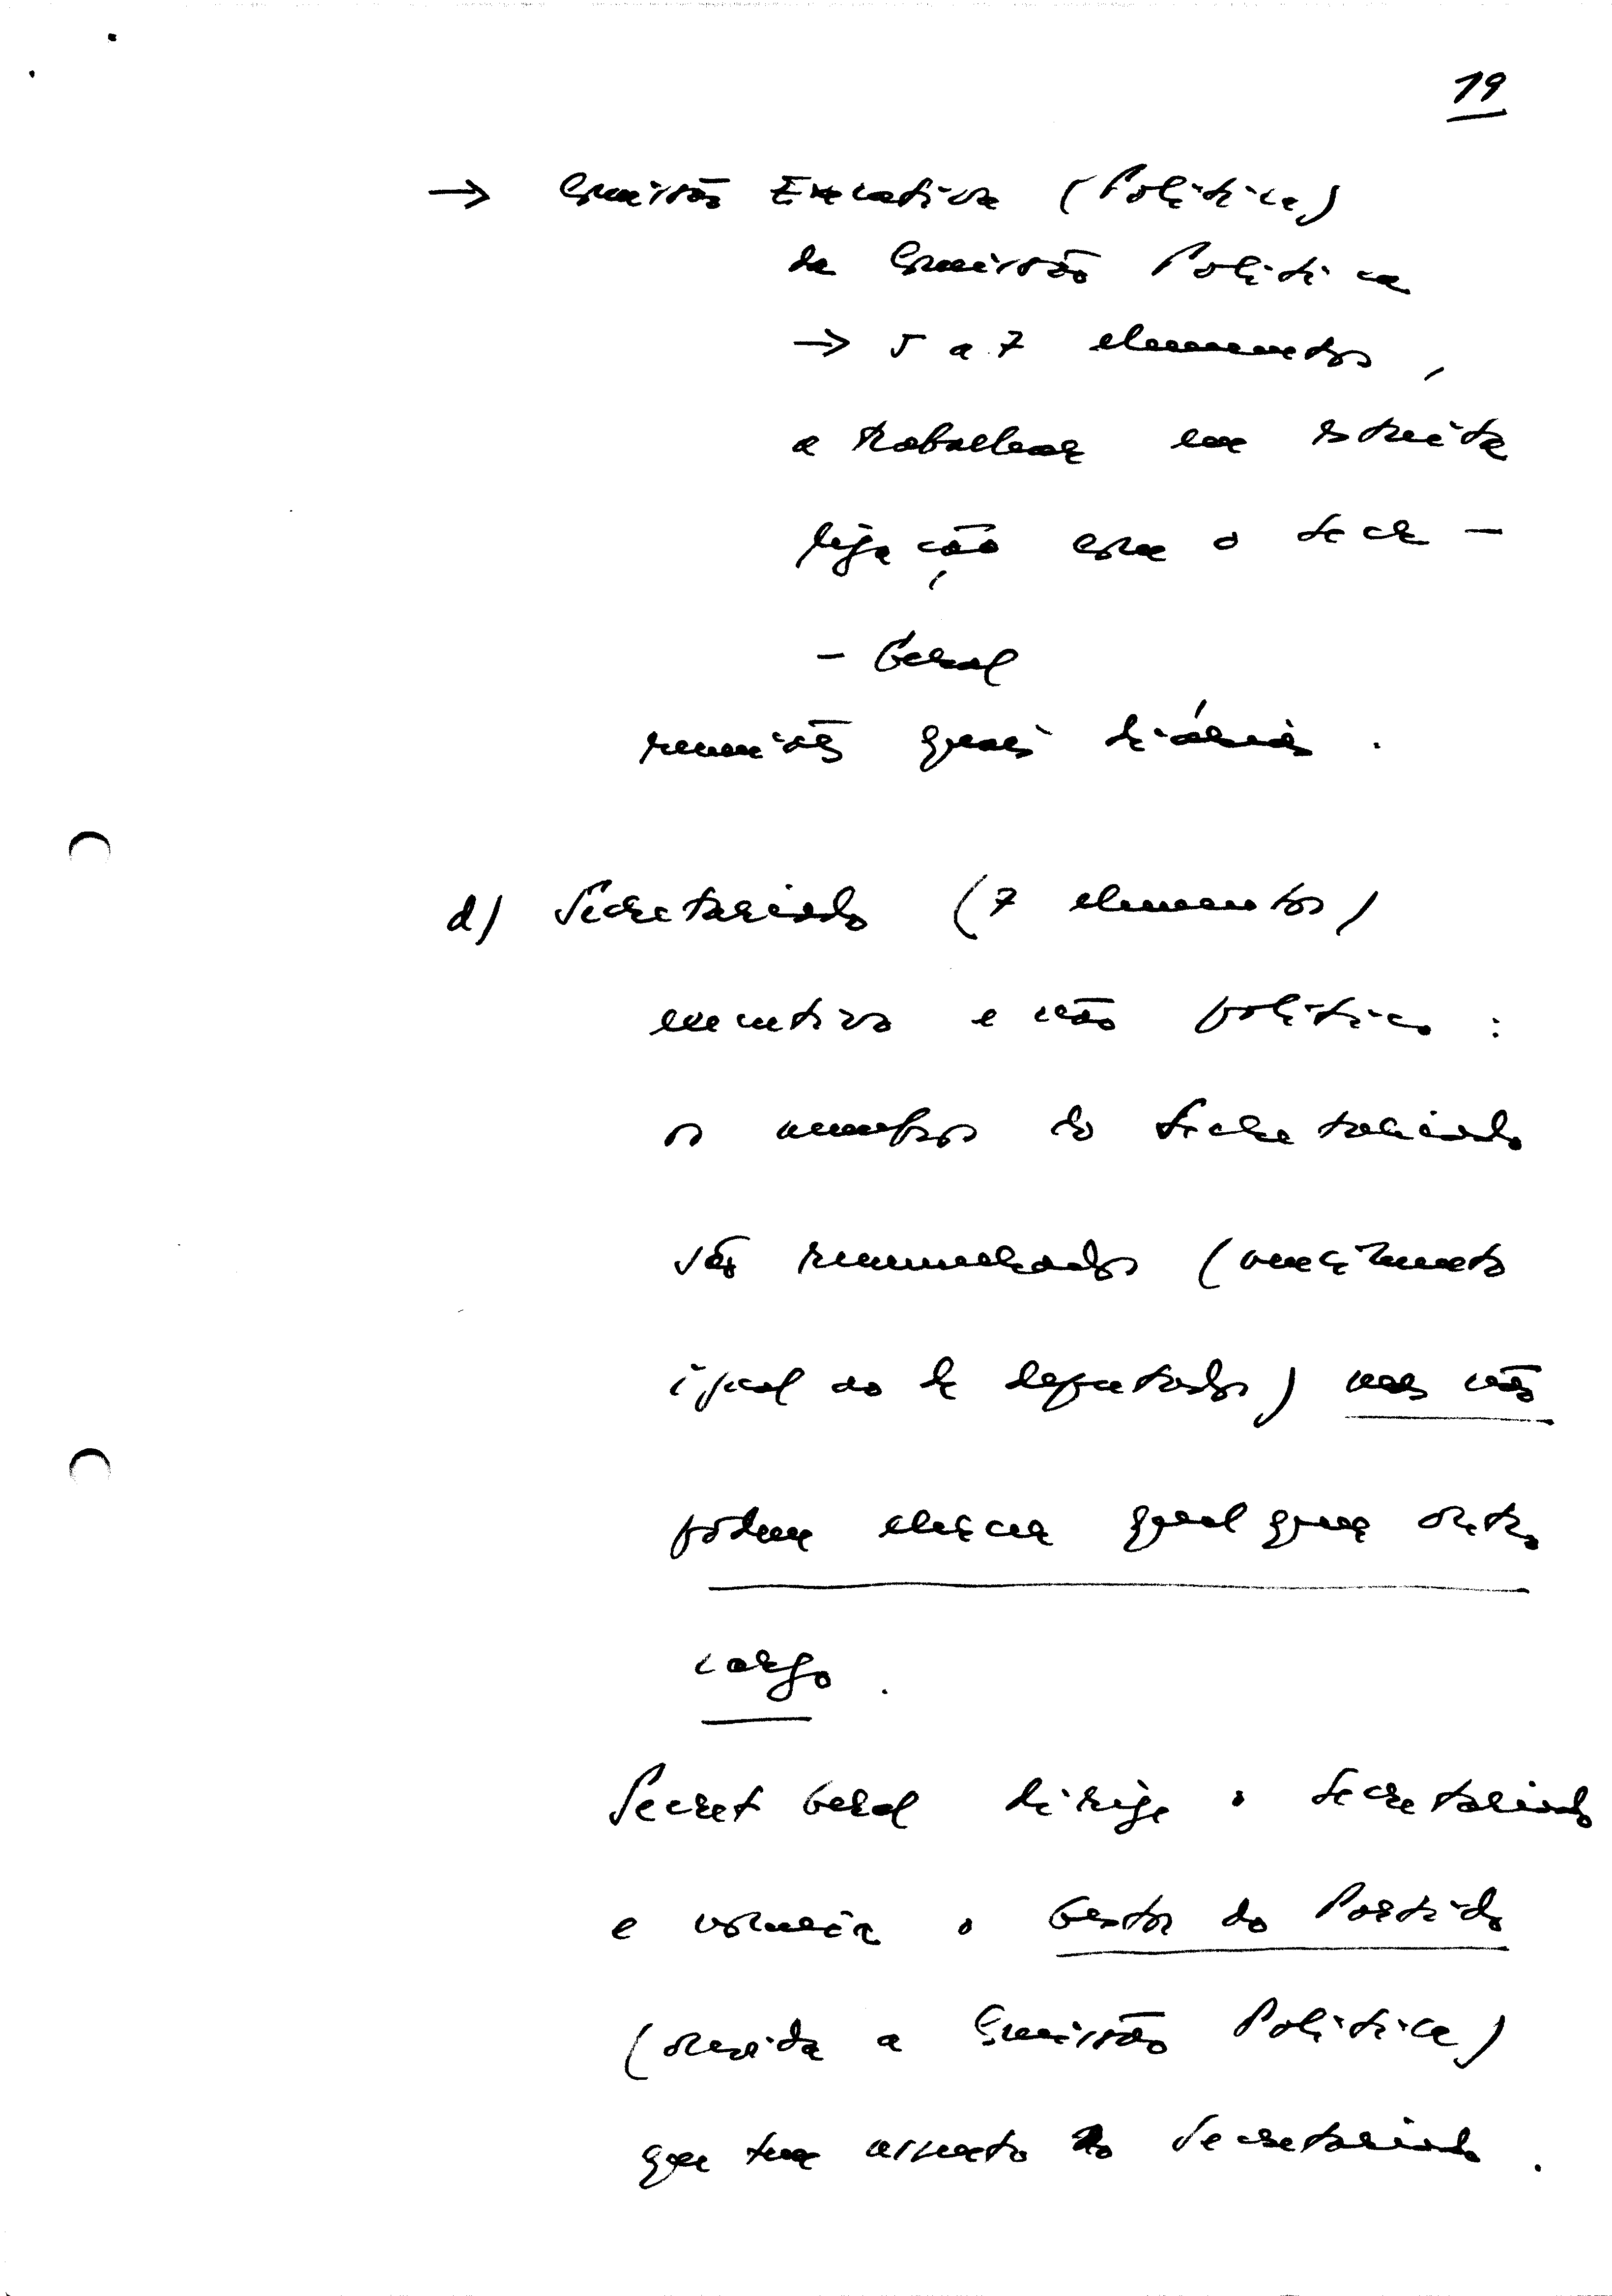 19
→ Comissão Executiva (Política)
da Comissão Política
→ 5 a 7 elementos,
a trabalhar em estreita
ligação com o Secr -
- Geral
reuniões quasi diárias.
d) Secretariado (7 elementos)
executivo e não político :
os membros do Secretariado
são remunerados (vencimento
igual ao de deputados) mas não
podem exercer qualquer outro
cargo.
Secret Geral dirige o Secretariado
e nomeia o Gestor do Partido
(ouvida a Comissão Política)
que tem assento no Secretariado.